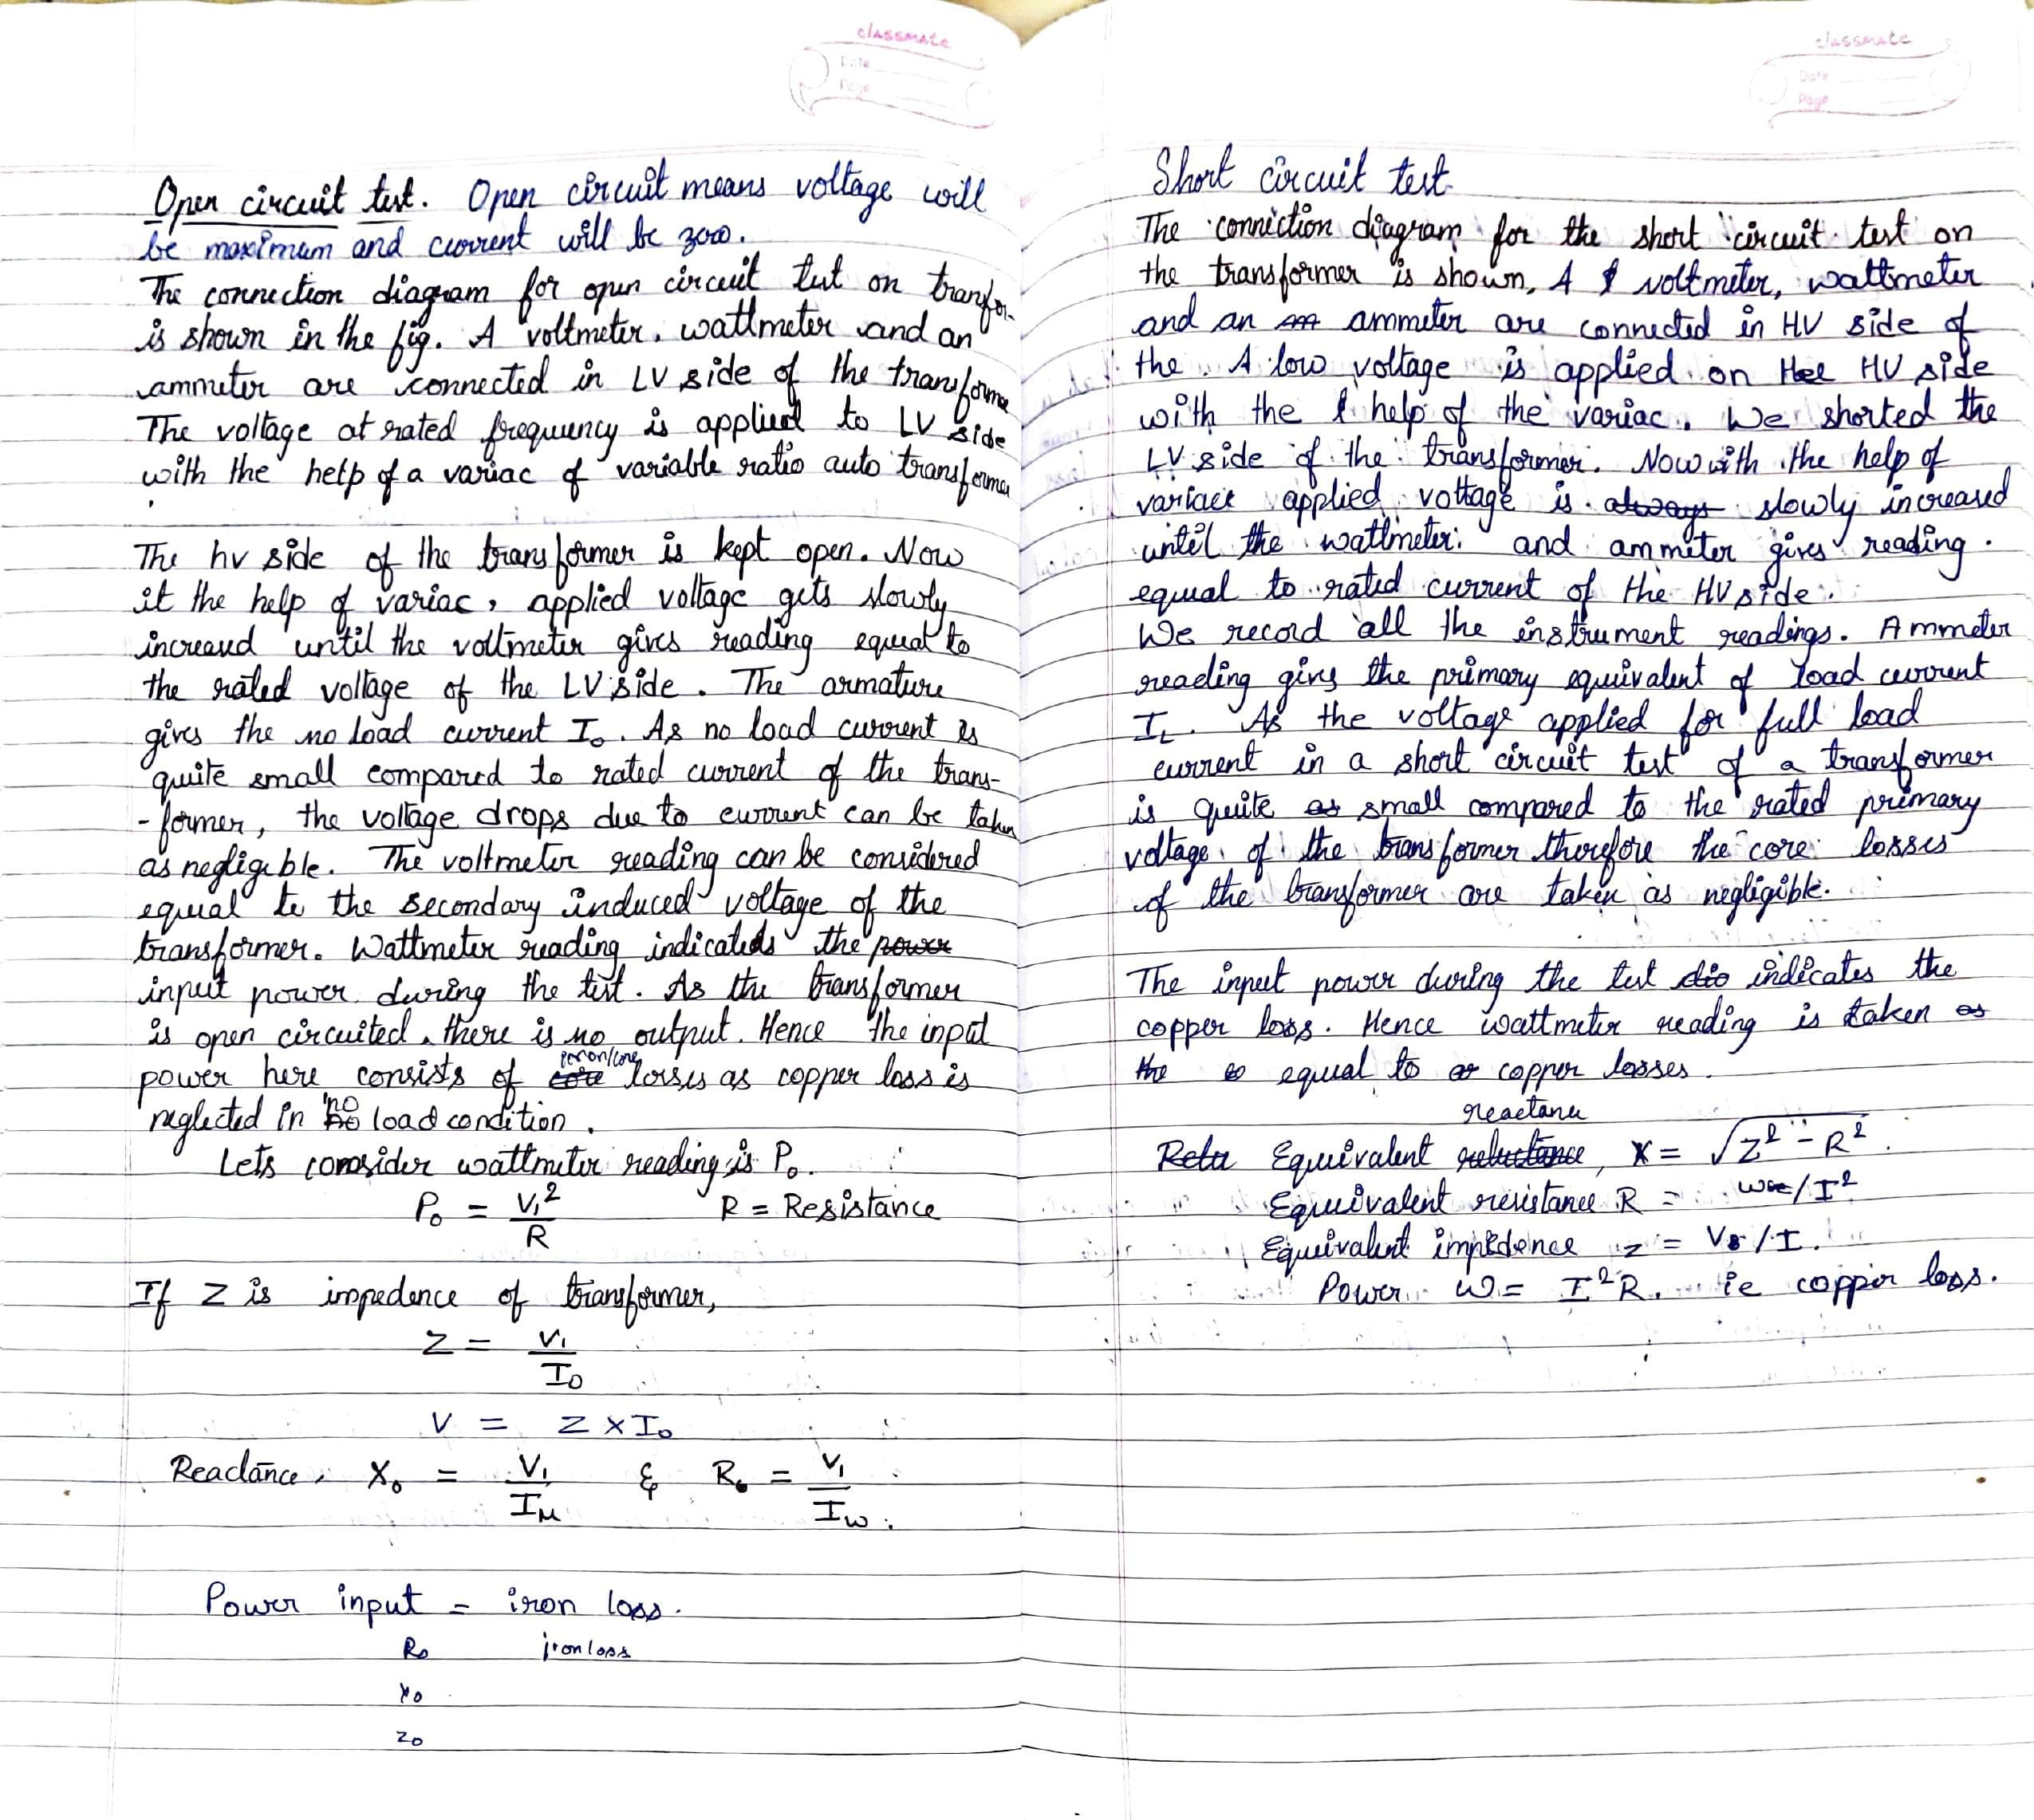 classmate
Date
Page
Open circuit test. Open circuit means voltage will
be maximum and current will be zero.
The connection diagram for open circuit test on transfor-
is shown in the fig. A voltmeter, wattmeter and an
ammeter are connected in LV side of the transformer
The voltage at rated frequency is applied to LV side
with the help of a variac of variable ratio auto transformer
The hv side of the transformer is kept open. Now
it the help of variac, applied voltage gets slowly
increased until the voltmeter gives reading equal to
the rated voltage of the LV side. The armature
gives the no load current I₀. As no load current is
quite small compared to rated current of the trans-
-former, the voltage drops due to current can be taken
as negligible. The voltmeter reading can be considered
equal to the secondary induced voltage of the
transformer. Wattmeter reading indicates the power
input power during the test. As the transformer
is open circuited, there is no output. Hence the input
power here consists of core iron/core losses as copper loss is
neglected in no load condition.
Lets consider wattmeter reading is P₀.
P₀ = V₁²/R R = Resistance
If Z is impedence of transformer,
Z = V₁/I₀
V = Z × I₀
Reactance, X₀ = V₁/Iμ & R₀ = V₁/Iw.
Power input = iron loss.
R₀ iron loss
X₀
Z₀
classmate
Date
Page
Short circuit test
The connection diagram for the short circuit test on
the transformer is shown, A voltmeter, wattmeter
and an ammeter are connected in HV side of
the. A low voltage is applied on the HV side
with the help of the variac. We shorted the
LV side of the transformer. Now with the help of
variac applied voltage is always slowly increased
until the wattmeter and ammeter gives reading.
equal to rated current of the HV side.
We record all the instrument readings. Ammeter
reading gives the primary equivalent of load current
I_L. As the voltage applied for full load
current in a short circuit test of a transformer
is quite as small compared to the rated primary
voltage of the transformer therefore the core losses
of the transformer are taken as negligible.
The input power during the test dio indicates the
copper loss. Hence wattmeter reading is taken as
the equal to copper losses.
Relu Equivalent reluctance reactance, X = √Z² - R².
Equivalent resistance R = /I²
Equivalent impedence z = Vs/I.
Power W = I²R. ie copper loss.